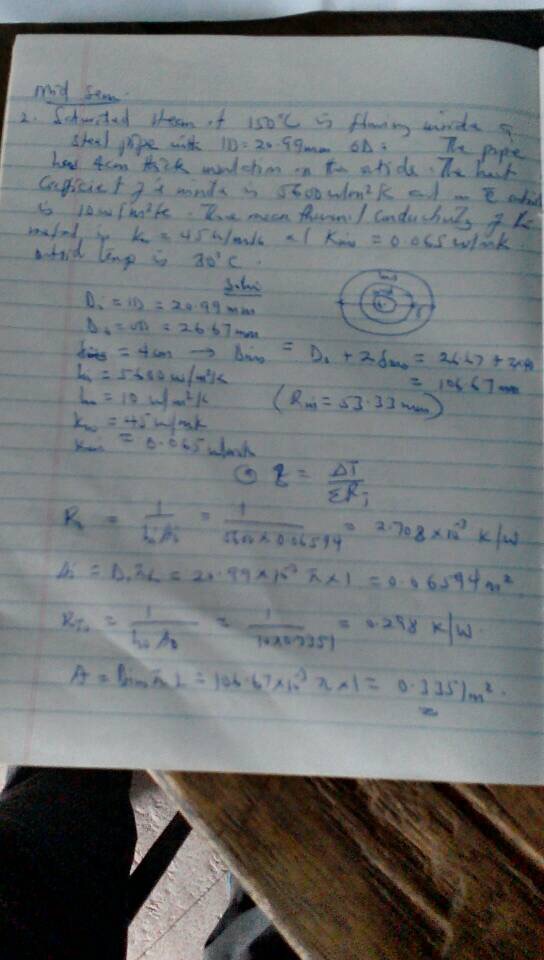 mid sem
2. Saturated steam at 150°C is flowing inside a
steel pipe with ID=20.99mm OD: The pipe
has 4cm thick insulation on the outside. The heat
coefficient inside is 5600w/m²K and on outside
is 10w/m²k. mean thermal conductivity of the
metal is km = 45w/mk Kins = 0.065w/mk
outside temp is 30°C.
Soln
Di = ID = 20.99mm
Do = OD = 26.67mm
= 4cm → Dins = Do + 2δins = 26.67 +
= 106.67mm
hi = 5600w/m²k
(Rins = 53.33mm)
ho = 10w/m²k
km = 45w/mk
kins = 0.065w/mk
q = ΔT/ΣRT
Ri = 1/hiAi = 1/5600×0.06594 = 2.708×10⁻³ K/W
Ai = DiπL = 20.99×10⁻³ π×1 = 0.06594m²
= 1/hoAo = 1/10×0.3351 = 0.298 K/W.
A = DinsπL = 106.67×10⁻³ π×1 = 0.3351m².